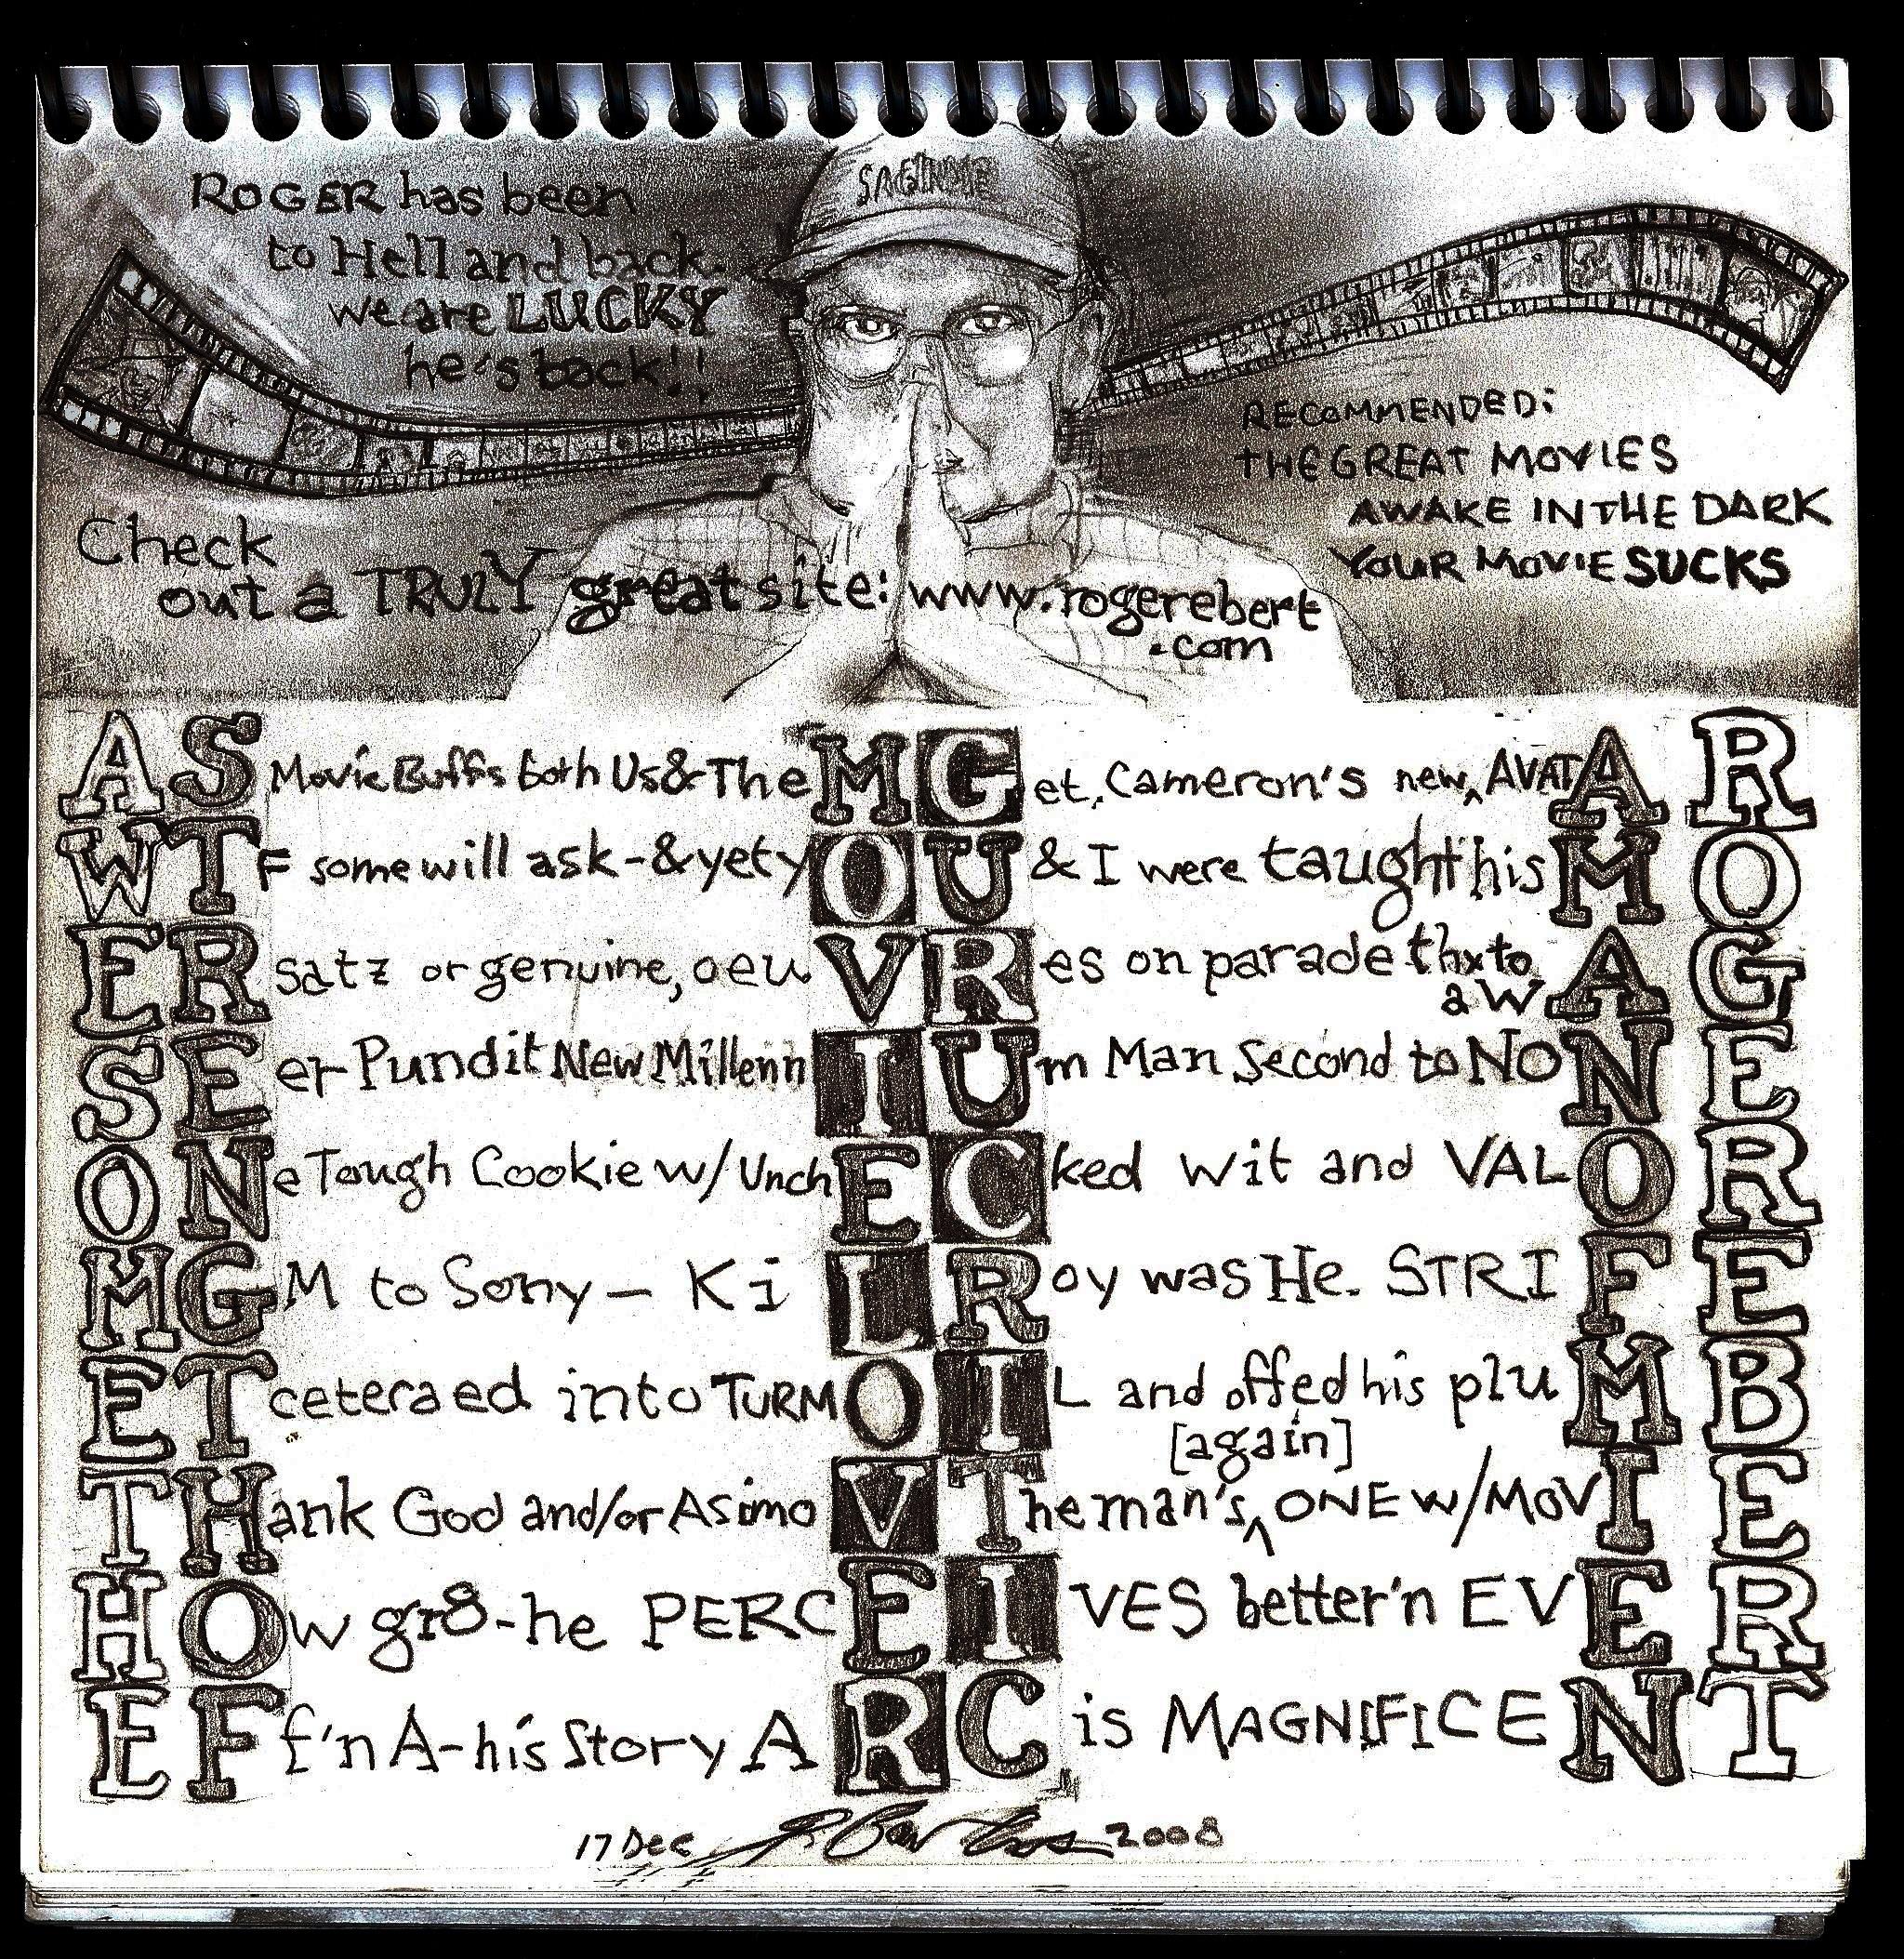 SAGINDIE
ROGER has been
to Hell and back.
we are LUCKY
he's back!!
RECOMMENDED:
THE GREAT MOVIES
AWAKE IN THE DARK
YOUR MOVIE SUCKS
Check
out a TRULY great site: www.rogerebert
.com
AS Movie Buffs both Us & The MG et, Cameron's new, AVATA R
WTF some will ask - & yety OU & I were taught his M O
ER satz or genuine, oeu VR es on parade thx to aw A G
SE er Pundit New Millenn IU m Man Second to NO N E
ON e Tough Cookie w/ Unch EC ked Wit and VAL O R
MG M to Sony - Ki LR oy was He. STRI F E
ET ceteraed into TURM OI L and offed his plu M B
TH ank God and/or Asimo VT he man's [again] ONE w/ MOV I E
HO w gr8 - he PERC EI VES better'n EV E R
EF f'n A - his Story A RC is MAGNIFICE N T
17 Dec 2008